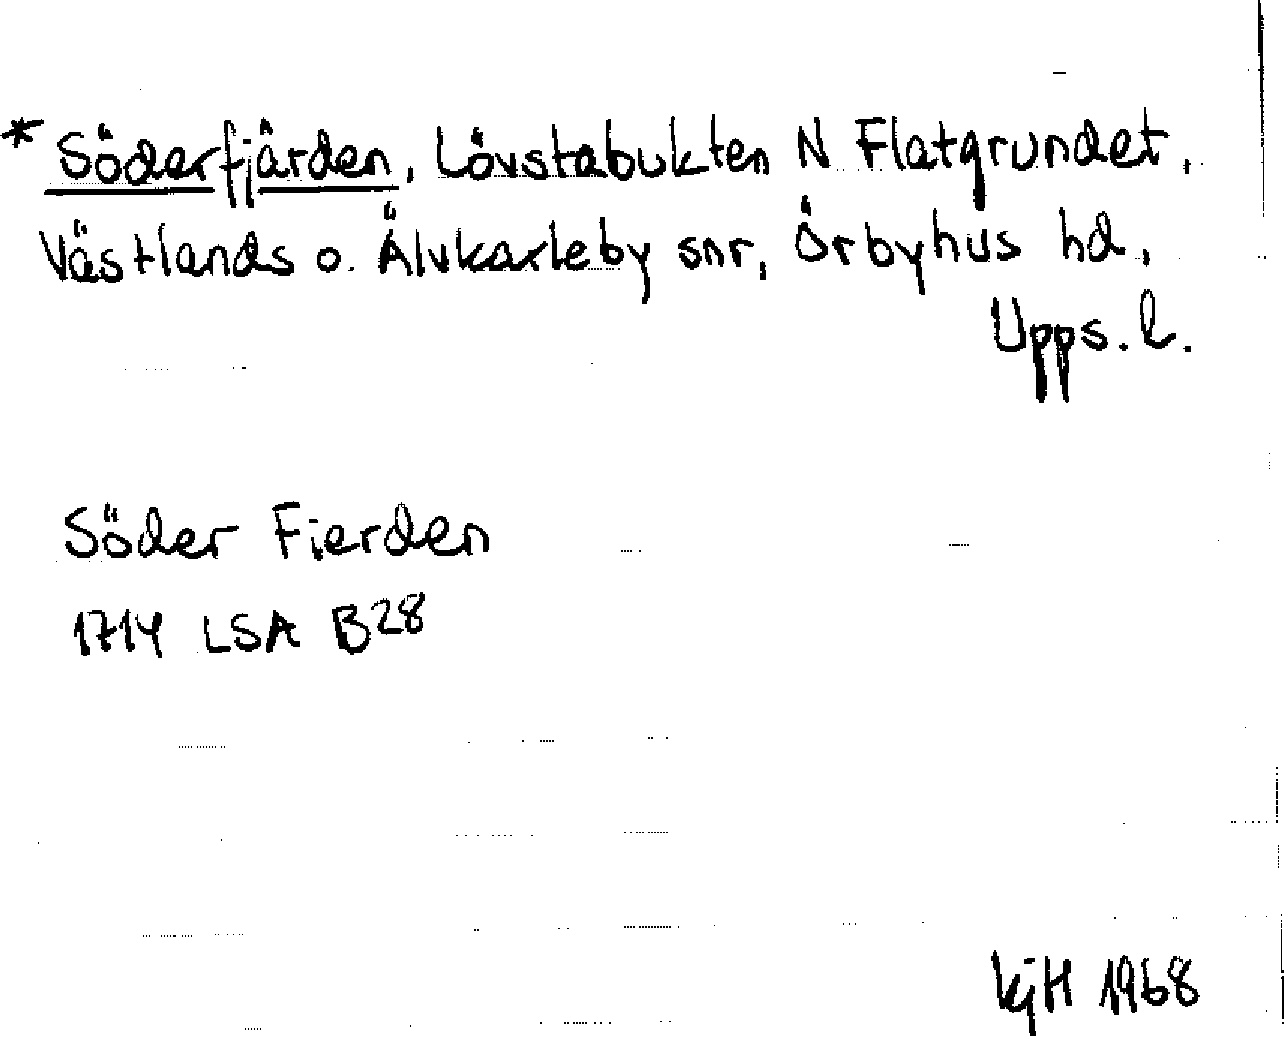 * Söderfjärden, Lövstabukten N Flatgrundet,
Västlands o. Älvkarleby snr, Örbyhus hd,
Upps. l.
Söder Fierden
1714 LSA B28
KjH 1968